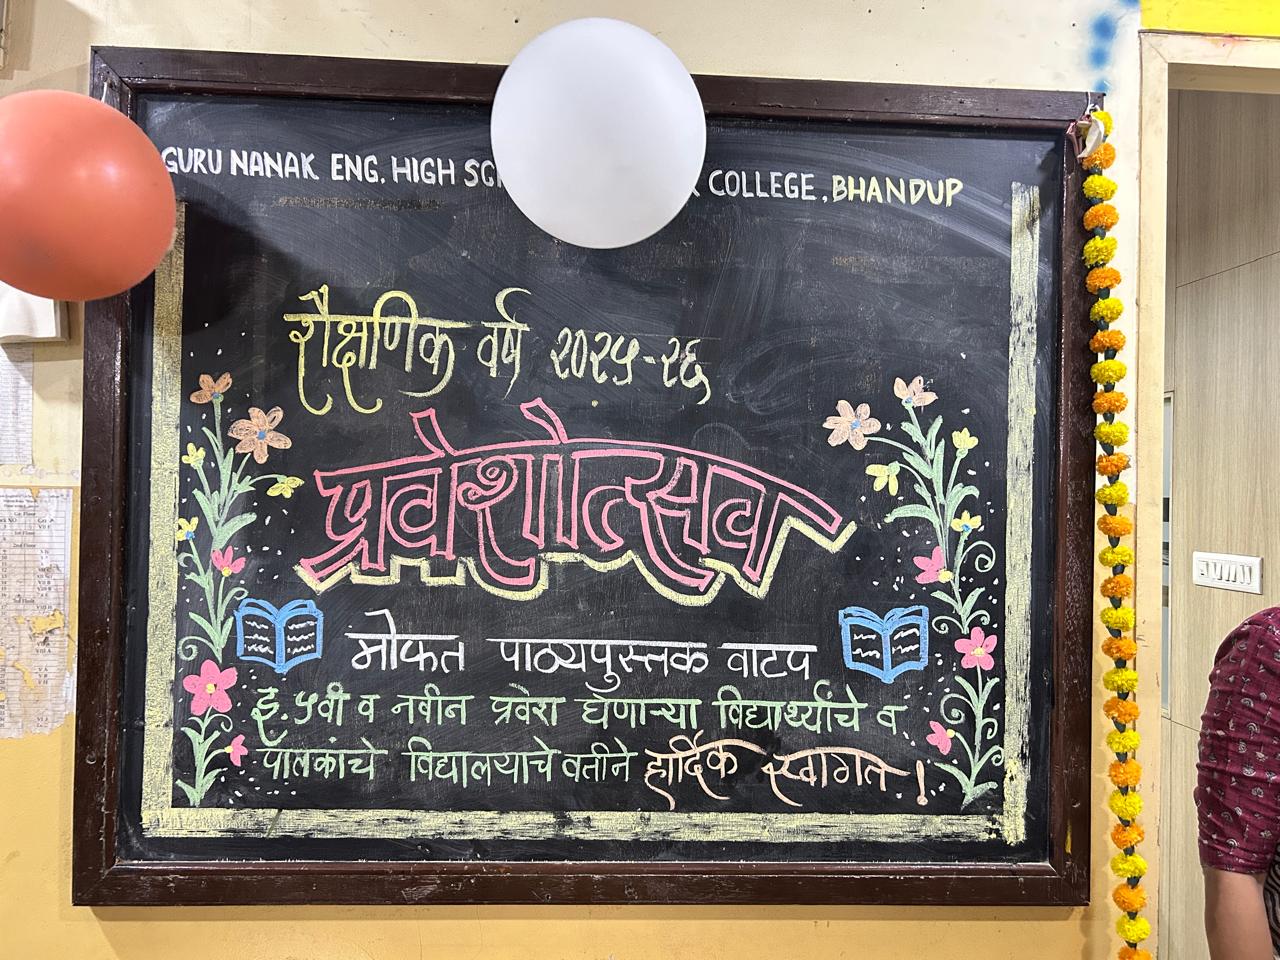 GURU NANAK ENG. HIGH COLLEGE, BHANDUP
शैक्षणिक वर्ष २०२५-२६
प्रवेशोत्सव
मोफत पाठ्यपुस्तक वाटप
इ. ५वी व नवीन प्रवेश घेणाऱ्या विद्यार्थ्यांचे व
पालकांचे विद्यालयाचे वतीने हार्दिक स्वागत !